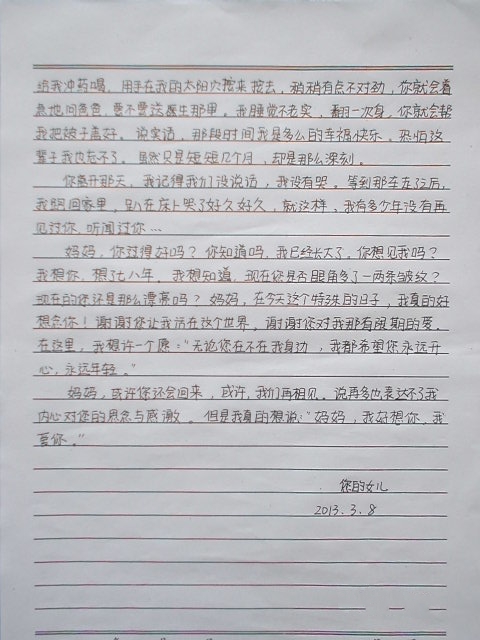 给我冲药喝，用手在我的太阳穴揉来揉去，稍稍有点不对劲，你就会着
急地问爸爸，要不要送医生那里。我睡觉不老实，翻一次身，你就会帮
我把被子盖好。说实话，那段时间我是多么的幸福快乐，恐怕这
辈子我也忘不了。虽然只是短短几个月，却是那么深刻。
你离开那天，我记得我们没说话，我没有哭。等到那车走了后，
我跑回家里，趴在床上哭了好久好久，就这样，我有多少年没有再
见过你，听闻过你…
妈妈，你过得好吗？你知道吗，我已经长大了，你想见我吗？
我想你，想了七八年。我想知道，现在您是否眼角多了一两条皱纹？
现在的您还是那么漂亮吗？妈妈，在今天这个特殊的日子，我真的好
想念你！谢谢您让我活在这个世界，谢谢您对我那有限期的爱。
在这里，我想许一个愿：“无论您在不在我身边，我都希望您永远开
心，永远年轻。”
妈妈，或许您还会回来，或许，我们再相见。说再多也表达不了我
内心对您的思念与感激。但是我真的想说：“妈妈，我好想你，我
爱你。”
您的女儿
2013.3.8